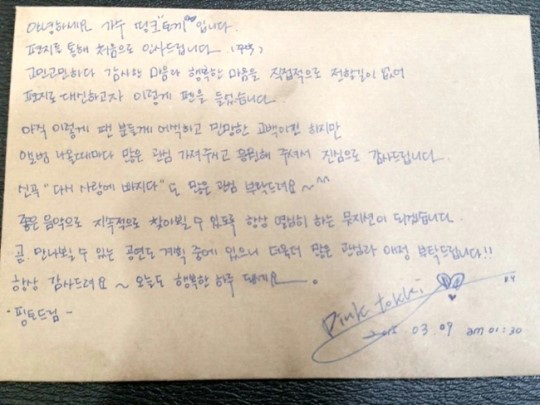 안녕하세요 가수 핑크"토끼"♡입니다.
편지를 통해 처음으로 인사드립니다.
고민고민하다 감사한 마음과 행복한 마음을 직접적으로 전할길이 없어
편지로 대신하고자 이렇게 펜을 들었습니다.
아직 이렇게 팬 분들께 어색하고 민망한 고백이긴 하지만
앨범 나올때마다 많은 관심 가져주시고 응원해 주셔서 진심으로 감사드립니다.
신곡 "다시 사랑에 빠지다" 도 많은 관심 부탁드려요~^^
좋은 음악으로 지속적으로 찾아뵐 수 있도록 항상 열심히 하는 뮤지션이 되겠습니다.
곧 만나뵐 수 있는 공연도 계획 중에 있으니 더욱더 많은 관심과 애정 부탁드립니다!!
항상 감사드려요~ 오늘도 행복한 하루 되세요.
-핑토드림-
Pink tokki ♡
2015.03.09 am 01:30